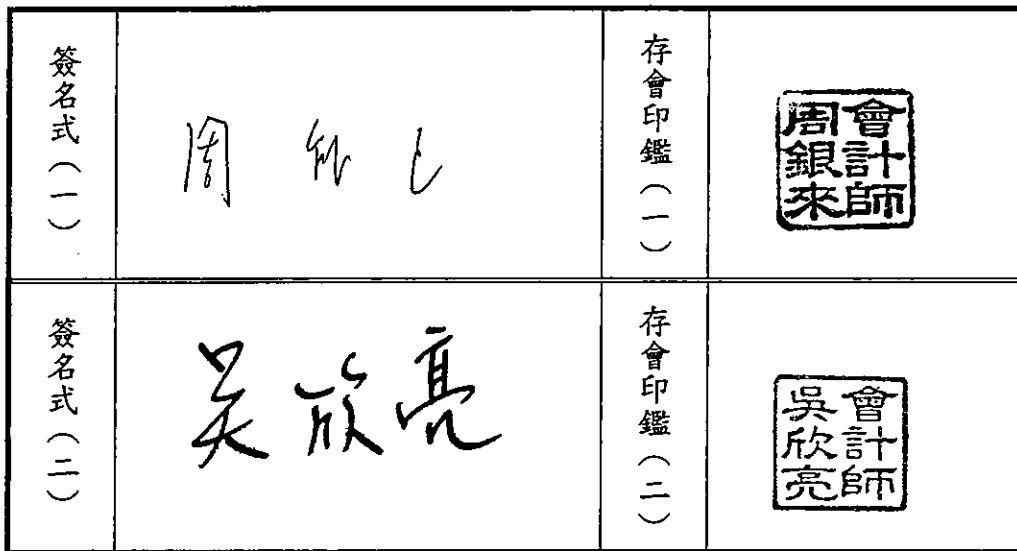 簽名式（一）
周銀來
存會印鑑（一）
會計師
周銀來
簽名式（二）
吳欣亮
存會印鑑（二）
會計師
吳欣亮